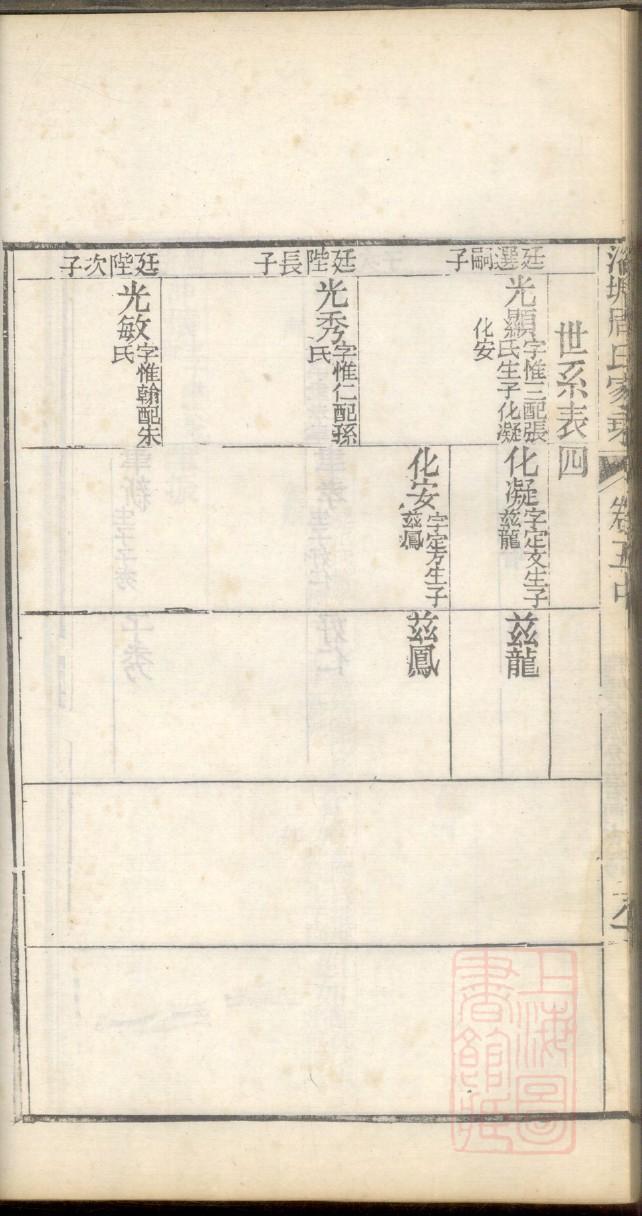 周氏家
卷五中
世系表四
廷選嗣子
光顯字惟三配張氏生子化凝化安
化凝字定文生子茲龍
茲龍
化安字定方生子茲鳳
茲鳳
廷陛長子
光秀字惟仁配孫氏
廷陛次子
光敏字惟翰配朱氏
上海圖書館藏